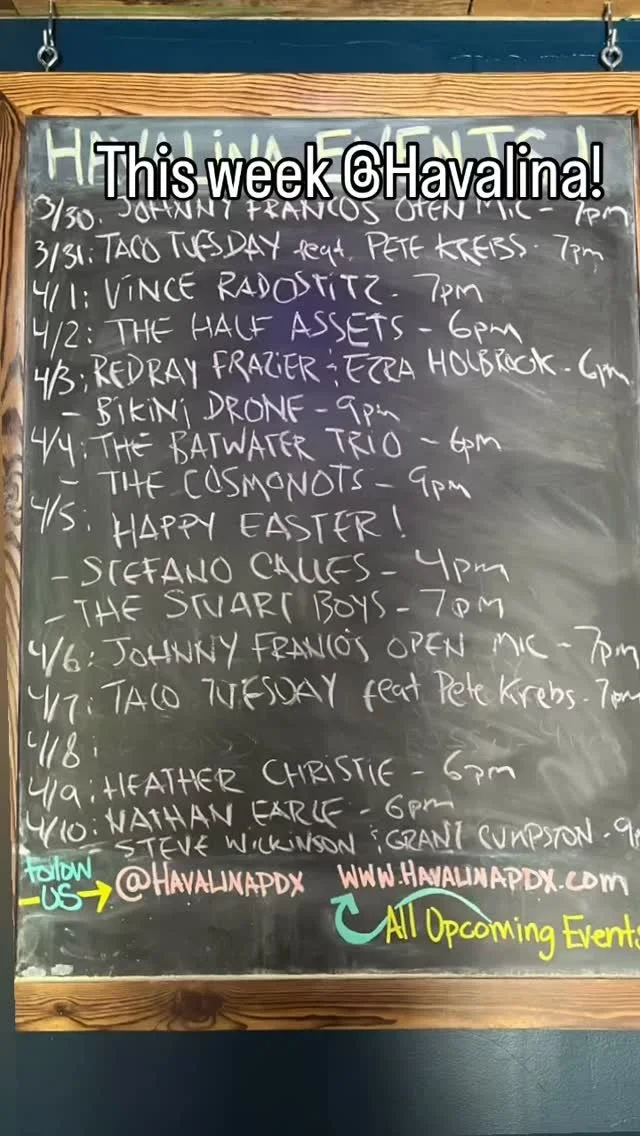 HAVALINA EVENTS!
This week @Havalina!
3/30: JOHNNY FRANCO'S OPEN MIC - 7pm
3/31: TACO TUESDAY feat. PETE KREBS - 7pm
4/1: VINCE RADOSTITZ - 7pm
4/2: THE HALF ASSETS - 6pm
4/3: REDRAY FRAZIER & EZRA HOLBROOK - 6pm
- BIKINI DRONE - 9pm
4/4: THE BATWATER TRIO - 6pm
- THE COSMONOTS - 9pm
4/5: HAPPY EASTER!
- STEFANO CALLES - 4pm
- THE STUART BOYS - 7pm
4/6: JOHNNY FRANCO'S OPEN MIC - 7pm
4/7: TACO TUESDAY feat Pete Krebs - 7pm
4/8:
4/9: HEATHER CHRISTIE - 6pm
4/10: NATHAN EARLE - 6pm
- STEVE WILKINSON & GRANT CUMPSTON - 9
Follow US → @HAVALINAPDX WWW.HAVALINAPDX.COM
All Upcoming Events